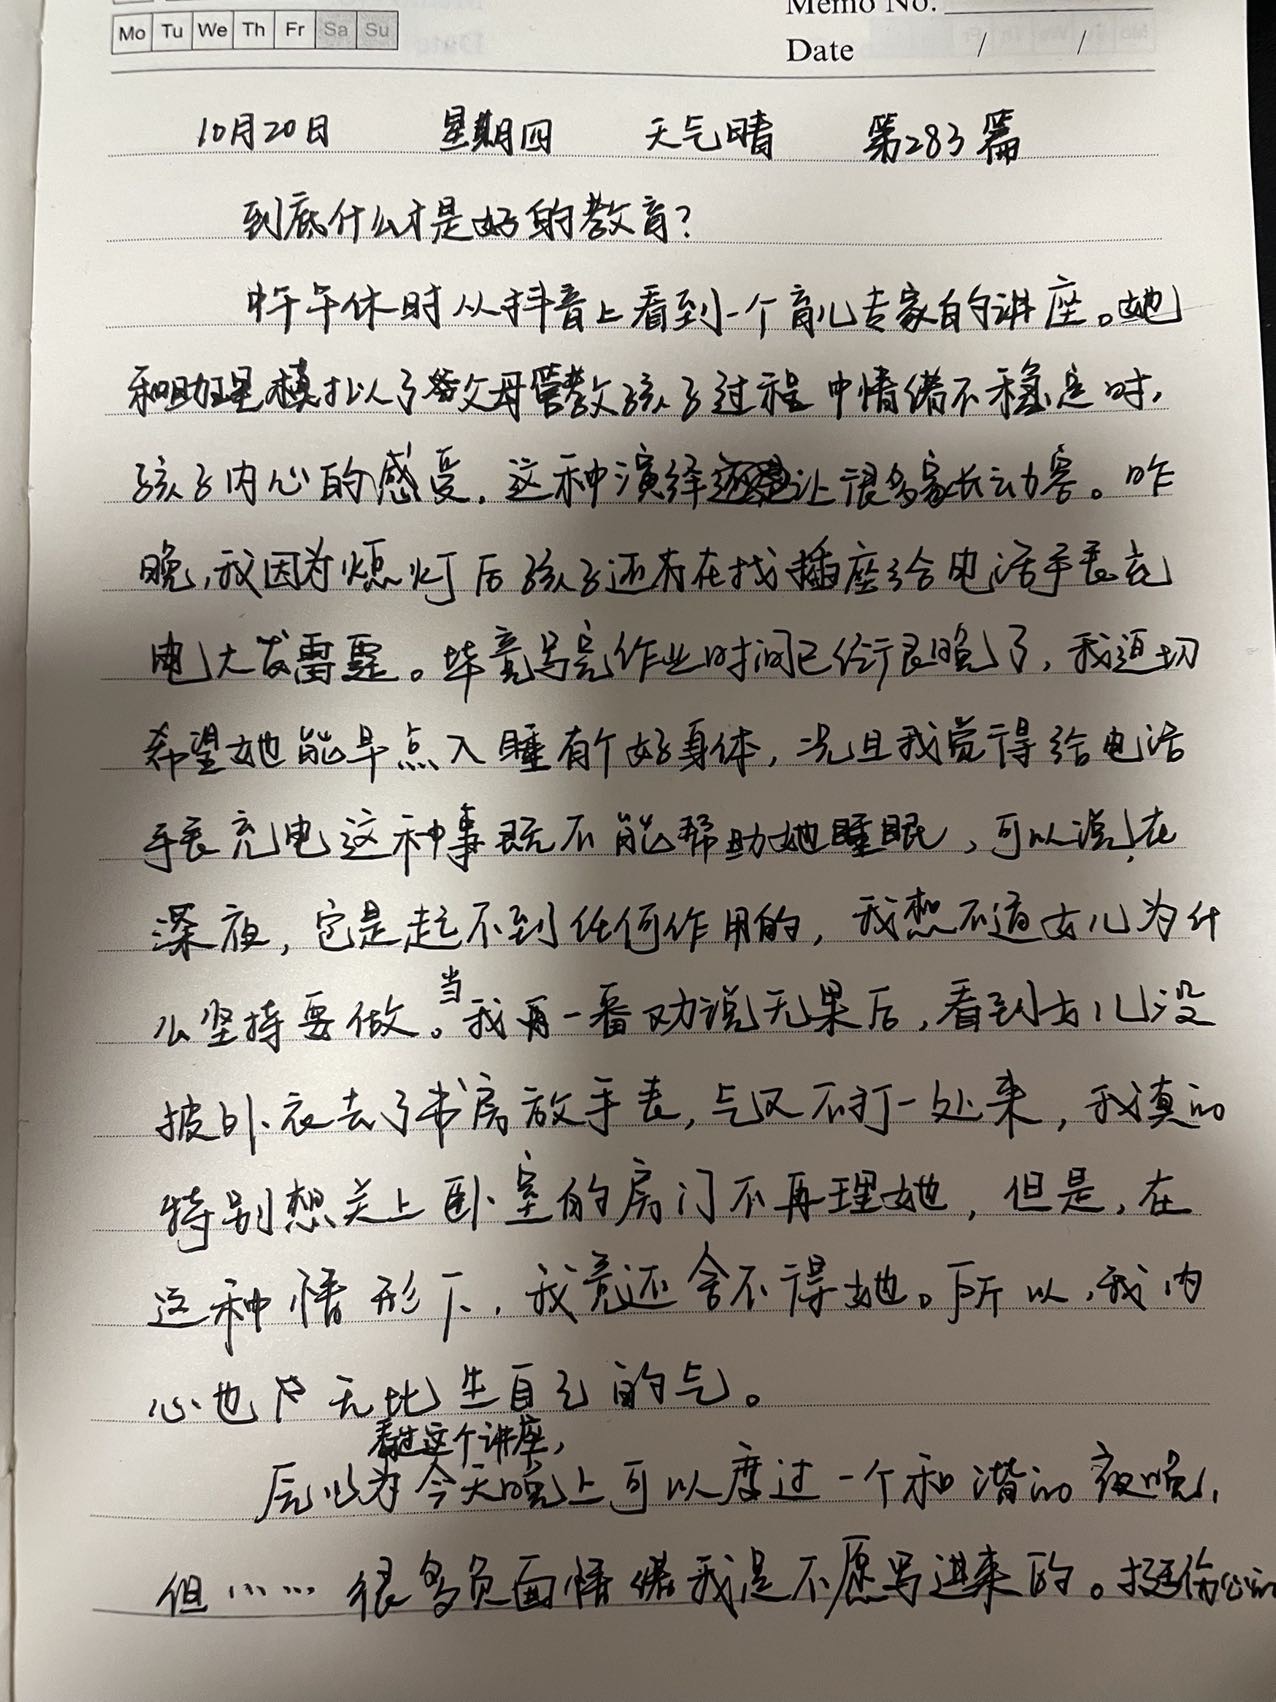 Memo No.
Mo Tu We Th Fr Sa Su
Date / /
10月20日 星期四 天气晴 第283篇
到底什么才是好的教育?
中午午休时从抖音上看到一个育儿专家的讲座。她
和助理模拟了父母管教孩子过程中情绪不稳定时,
孩子内心的感受。这种演绎让很多家长动容。昨
晚,我因为熄灯后孩子还在找插座给电话手表充
电大发雷霆。毕竟写完作业时间已经很晚了,我迫切
希望她能早点入睡有个好身体,况且我觉得给电话
手表充电这种事既不能帮助她睡眠,可以说,在
深夜,它是起不到任何作用的,我想不通女儿为什
么坚持要做。当我再一番劝说无果后,看到女儿没
披外衣去了书房放手表,气又不打一处来,我真的
特别想关上卧室的房门不再理她,但是,在
这种情形下,我竟还舍不得她。所以,我内
心也无比生自己的气。
看过这个讲座,
原以为今天晚上可以度过一个和谐的夜晚,
但…… 很多负面情绪我是不愿写进来的。挺伤心的